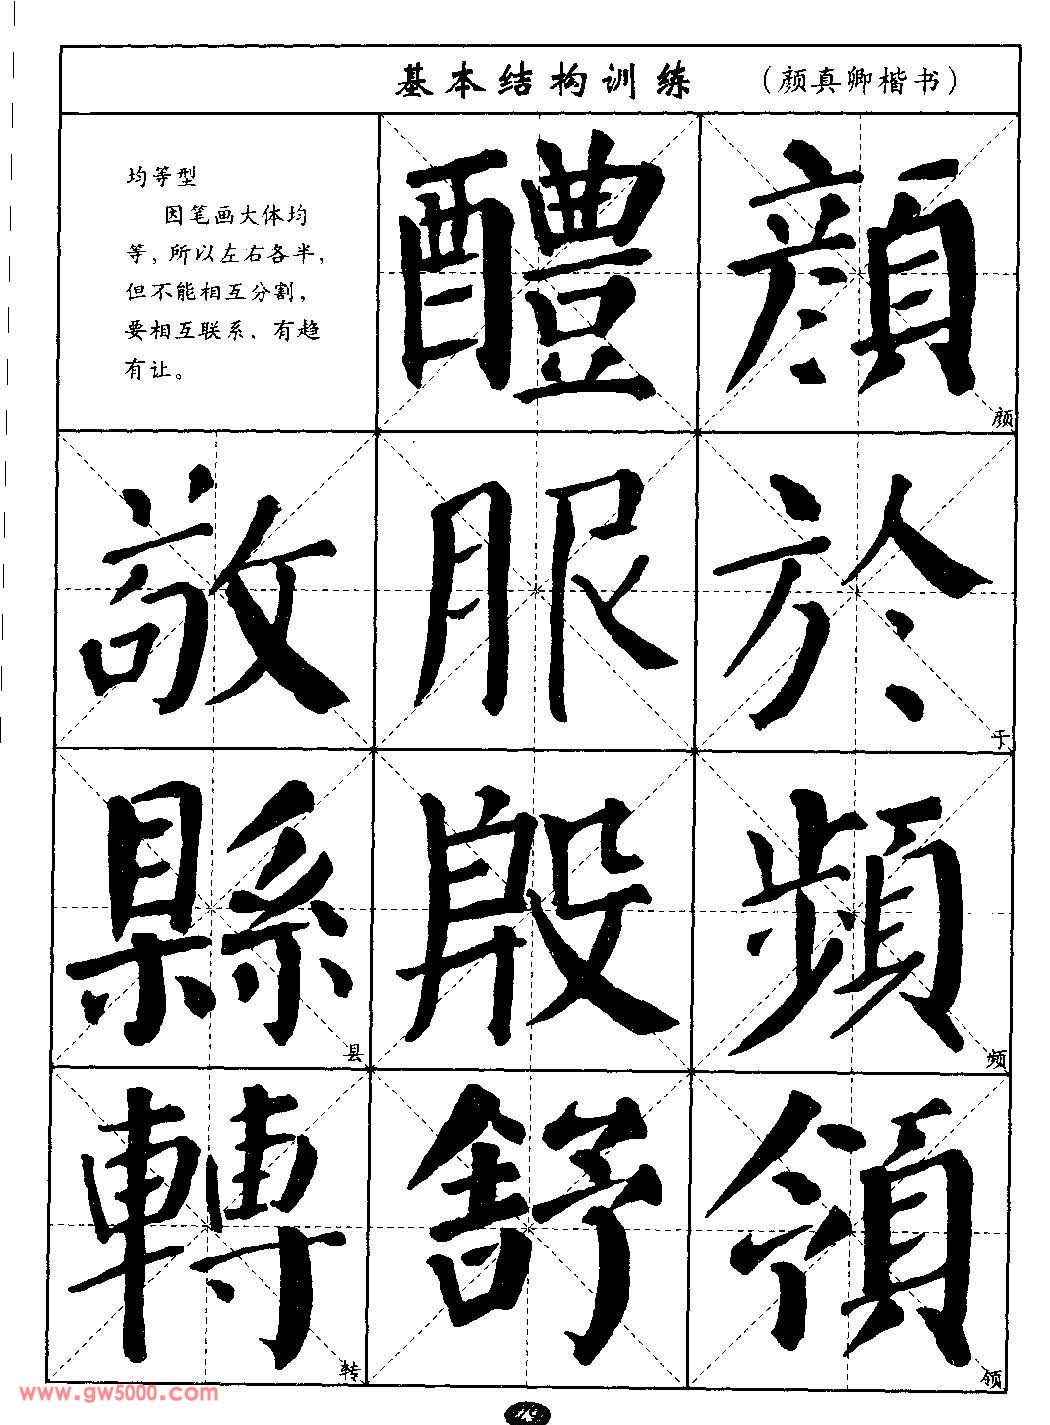 基本结构训练 （颜真卿楷书）
均等型
因笔画大体均
等，所以左右各半，
但不能相互分割，
要相互联系，有趋
有让。
醴 顔
颜
敬 服 於
于
縣 殷 頻
县 频
轉 舒 領
转 领
www.gw5000.com